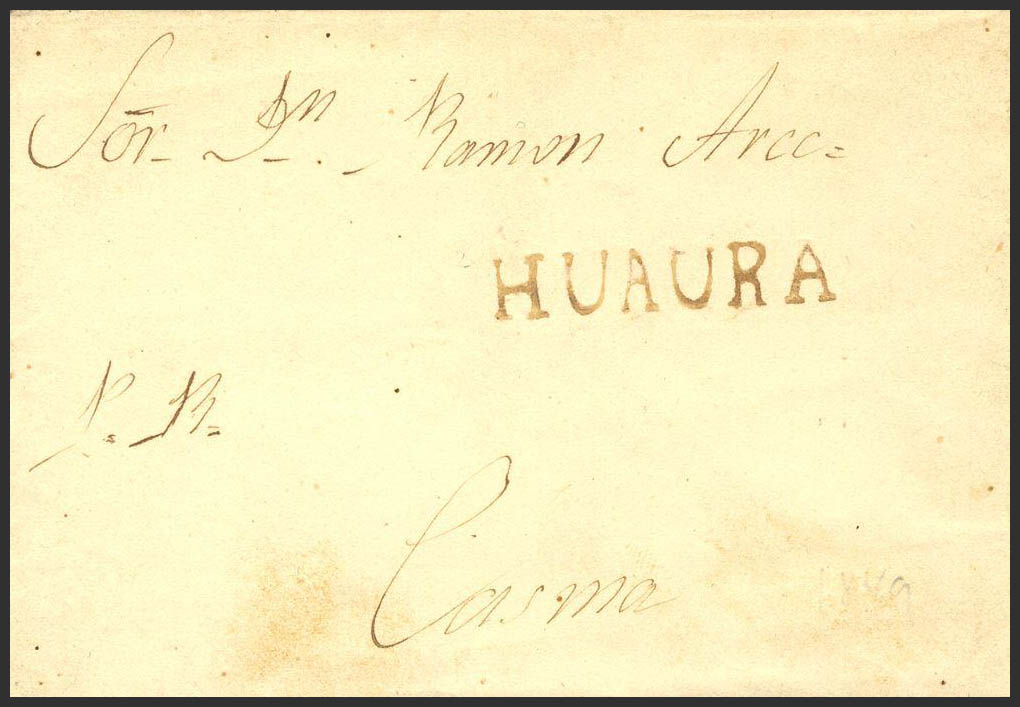 Sōr. Dn. Ramon Arce=
HUAURA
P. R=
Casma